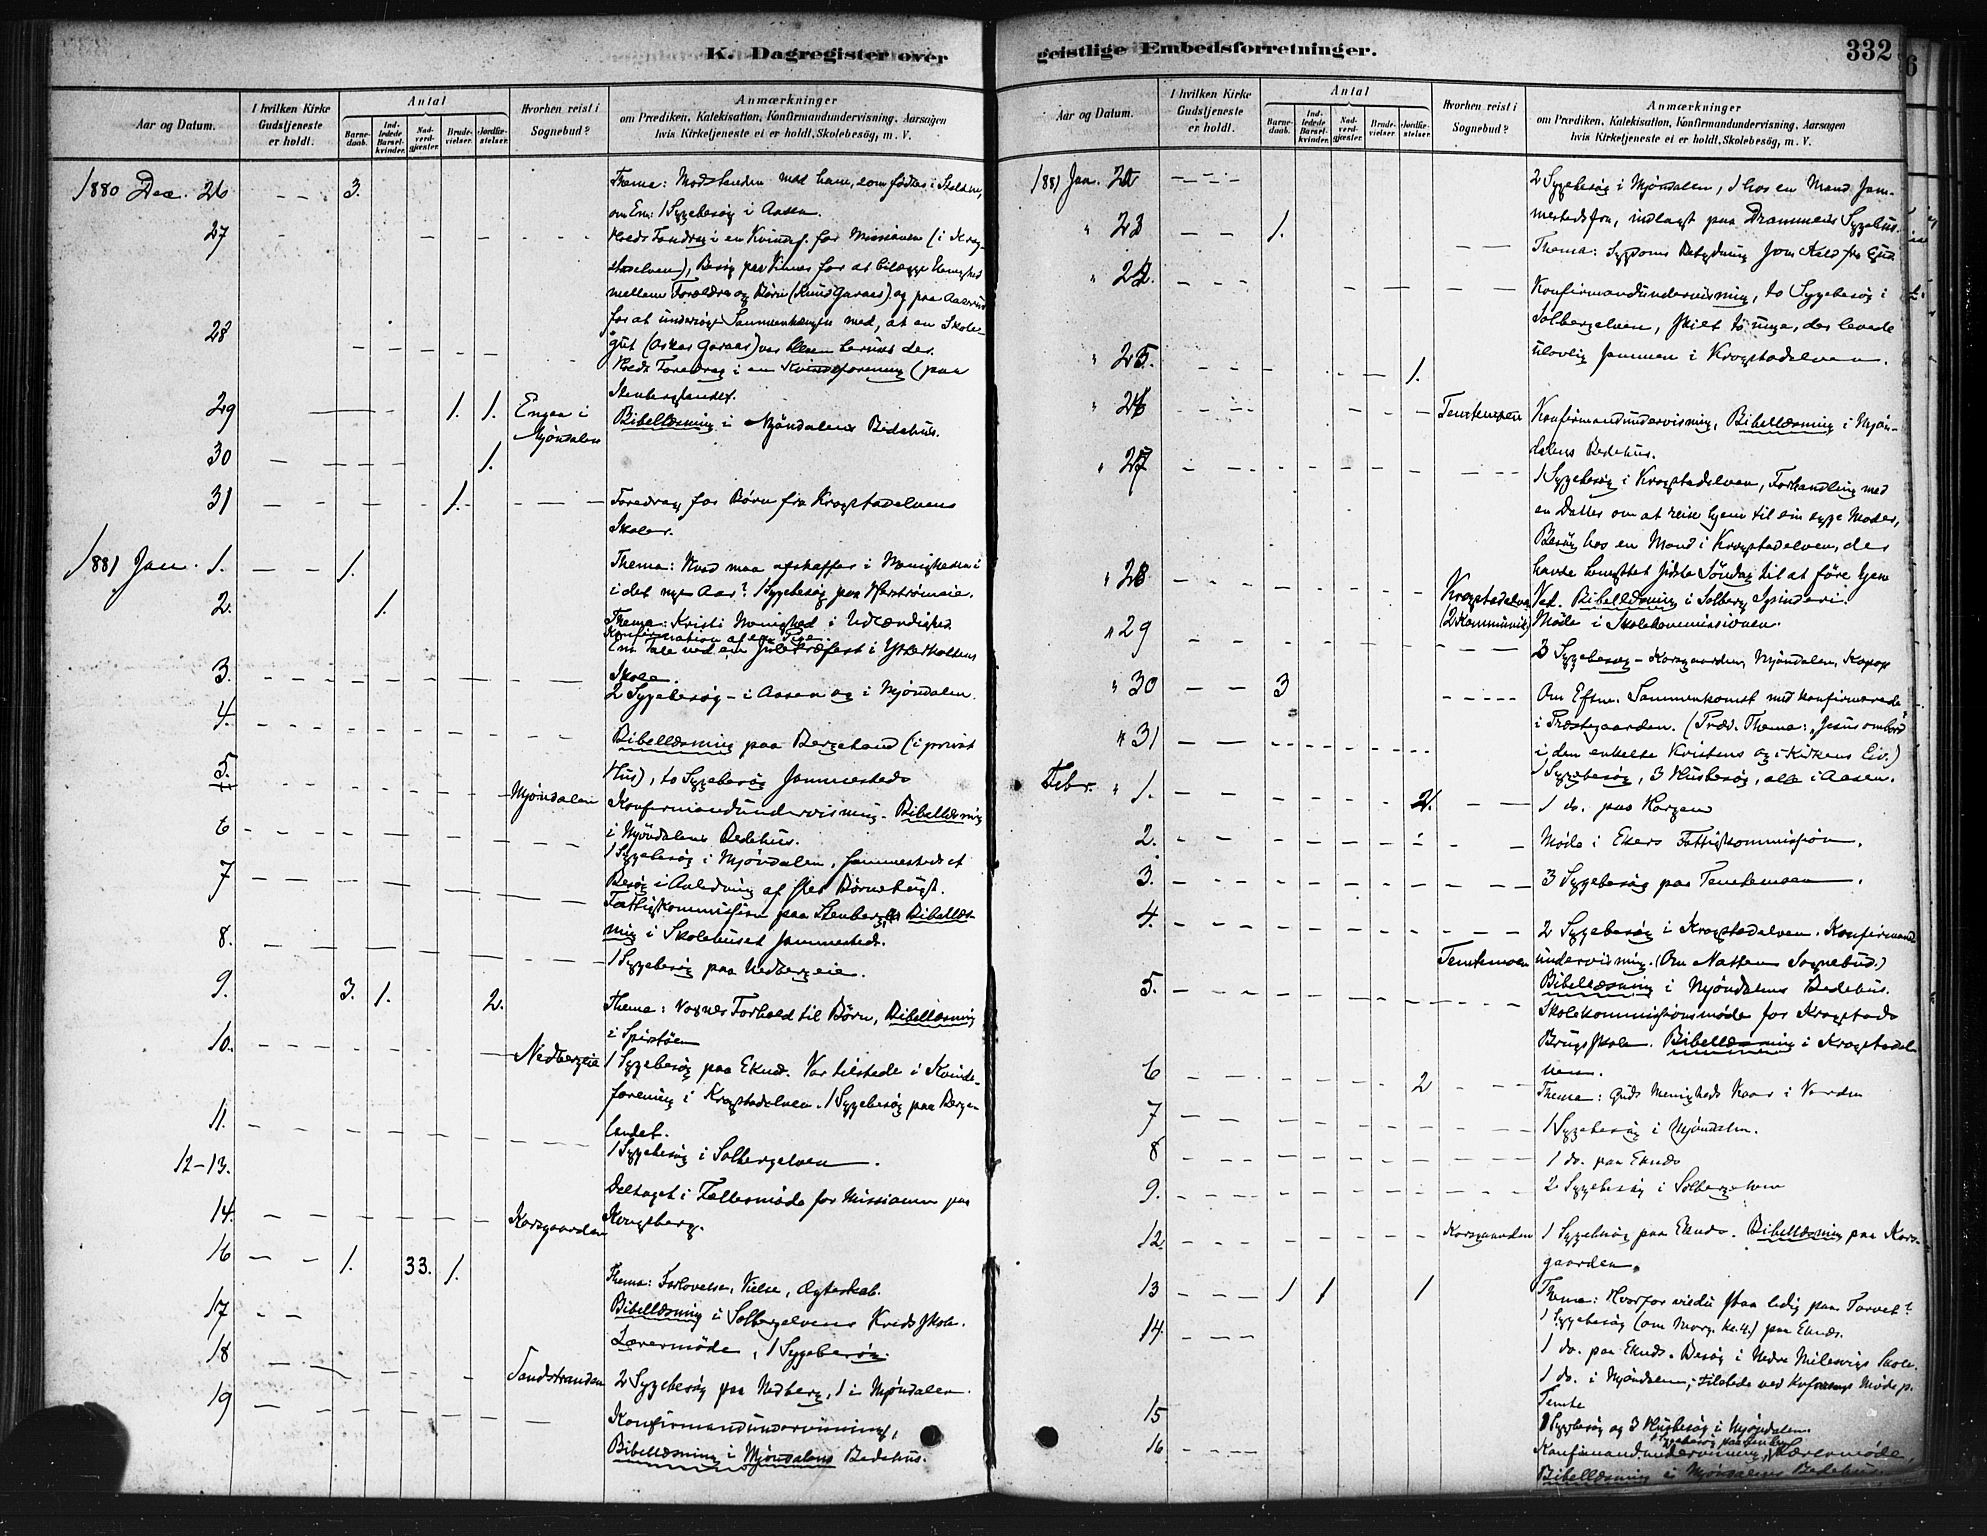 K. Dagregister over
Aar og Datum.
I hvilken Kirke Gudstjeneste er holdt.
Antal
Barne-daab.
Ind-ledede Barsel-kvinder.
Nad-verd-gjæster.
Brude-vielser.
Jordfæ-stelser.
Hvorhen reist i Sognebud?
Anmærkninger
om Prædiken, Katekisation, Konfirmandundervisning, Aarsagen
hvis Kirketjeneste ei er holdt, Skolebesøg, m. V.
1880 Dec. 26 3. Thema: Modstanden mod ham, som fødtes i Stalden,
om Em: 1 Sygebesøg i Aasen.
27 Holdt Foredrag i en Kvindef. for Missionen (i Krog-
stadelven), Besøg paa for at bilægge Uenighed
mellem Forældre og Børn (Knud Garaas) og paa
for at undersøge Sammenhængen med, at en Skole-
28 gut (Oskar Garaas) var bleven beruset der.
Holdt Foredrag i en Kvindeforening (paa
Stenberglandet.
29 1. 1. Engen i Mjøndalen Bibellæsning i Mjøndalens Bedehus.
30 1.
31 1. Foredrag for Børn fra Krogstadelvens
Skoler.
1881 Jan. 1. 1. Thema: Hvad maa afskaffes i Menigheden
i det nye Aar? 1 Sygebesøg paa
2. 1. Thema: Kristi Menighed i Udlændighed.
Konfirmation af en Pige.
Tale ved en Juletræfest i
3. Skole.
2 Sygebesøg – i Aasen og i Mjøndalen.
4. Bibellæsning paa Bergeland (i privat
5. Hus), to Sygebesøg sammesteds
Mjøndalen Konfirmandundervisning. Bibellæsning
6 i Mjøndalens Bedehus.
1 Sygebesøg i Mjøndalen, sammesteds et
7 Besøg i Anledning af slet Børnetugt.
Fattigkommission paa Stenberg, Bibellæs-
8. ning i Skolehuset sammesteds.
1 Sygebesøg paa Nedbergeie.
9. 3. 1. 2. Thema: Vognes Forhold til Børn, Bibellæsning
i
10. Nedbergeie 1 Sygebesøg paa Eknes. Var tilstede i Kvinde-
forening i Krogstadelven. 1 Sygebesøg paa Bergen-
11. landet.
1 Sygebesøg i Solbergelven.
12–13. Deltaget i Fællesmøde for Missionen paa
14. Korsgaarden Kongsberg.
16 1. 33. 1. Thema: Forlovelse, Vielse, Ægteskab.
17 Bibellæsning i Solbergelvens Kredsskole.
18 Lærermøde, 1 Sygebesøg.
Sandstranden 2 Sygebesøg paa Nedberg, 1 i Mjøndalen.
19 Konfirmandundervisning,
Bibellæsning i Mjøndalens Bedehus.
geistlige Embedsforretninger.
332
Aar og Datum.
I hvilken Kirke Gudstjeneste er holdt.
Antal
Barne-daab.
Ind-ledede Barsel-kvinder.
Nad-verd-gjæster.
Brude-vielser.
Jordfæ-stelser.
Hvorhen reist i Sognebud?
Anmærkninger
om Prædiken, Katekisation, Konfirmandundervisning, Aarsagen
hvis Kirketjeneste ei er holdt, Skolebesøg, m. V.
1881 Jan. 2 Sygebesøg i Mjøndalen, 1 hos en Mand sam-
mestedsfra, indlagt paa Drammens Sygehus.
" 23 1. Thema: Sygdoms Betydning som Kald fra Gud
" Konfirmandundervisning, to Sygebesøg i
Solbergelven, skilt to unge, der levede
" 25. 1. ulovlig sammen i Krogstadelven.
" 26 Temtemoen Konfirmandundervisning, Bibellæsning i Mjøn-
dalens Bedehus.
" 27 1 Sygebesøg i Krogstadelven, Forhandling med
en Datter om at reise hjem til sin syge Moder,
Besøg hos en Mand i Krogstadelven, der
havde benyttet sidste Søndag til at føre hjem
" 28 Krogstadelven Ved. Bibellæsning i Solberg Spinderi.
(2 Kommunik) Møde i Skolekommissionen.
" 29 3 Sygebesøg – Korsgaarden, Mjøndalen,
" 30 3 Om Efterm. Sammenkomst med konfirmerede
i Præstegaarden. (Præd. Thema: "Jesus ombord"
" 31 i den enkelte Kristens og i Kirkens Liv.)
1 Sygebesøg, 3 Husbesøg, alle i Aasen.
Febr. " 1. 2. 1 do. paa Horgen
2. Møde i Ekers Fattigkommission.
3. 3 Sygebesøg paa Temtemoen.
4. 2 Sygebesøg i Krogstadelven. Konfirmand-
Temtemoen undervisning. (Om Natten Sognebud.)
5. Bibellæsning i Mjøndalens Bedehus.
Skolekommissionsmøde for Krogstads
Brugsskole. Bibellæsning i Krogstadel-
6 2 ven.
Thema: Guds Menigheds Kaar i Verden
7 1 Sygebesøg i Mjøndalen.
8 1 do. paa Eknes
9. 2 Sygebesøg i Solbergelven
12. Korsgaarden 1 Sygebesøg paa Eknes. Bibellæsning paa Kors-
gaarden.
13 1 1 1 Thema: Hvorfor ville I staa ledig paa Torvet?
1 Sygebesøg (om Morg. kl. 4.) paa Eknes.
14. 1 do. paa Eknes. Besøg i Nedre Milesvigs Skole.
1 do. i Mjøndalen, tilstede ved Møde p.
Temte
15 1 Sygebesøg og 3 Husbesøg i Mjøndalen.
16 Konfirmandundervisning, Lærermøde,
Bibellæsning i Mjøndalens Bedehus.